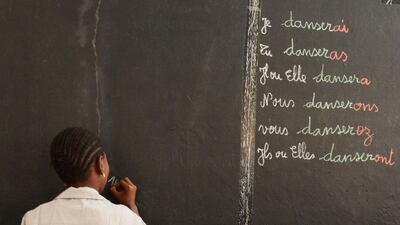 Je danserai
Tu danseras
Il ou Elle dansera
Nous danserons
vous danserez
Ils ou Elles danseront